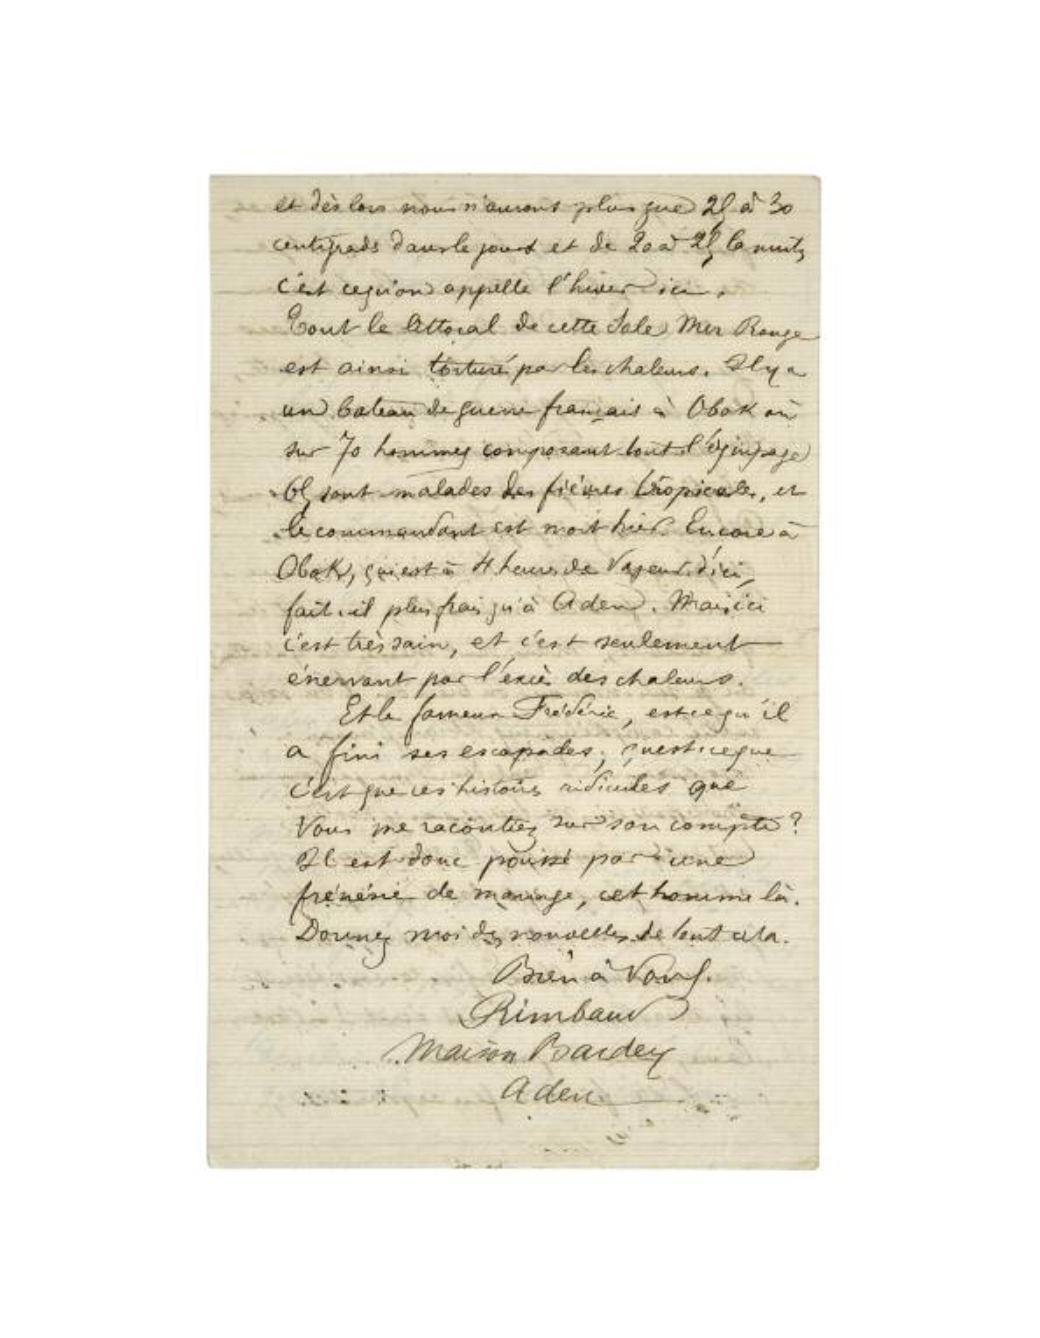 et dès lors nous n'aurons plus que 25 à 30
centigrads dans le jour et de 20 à 25 la nuit,
c'est ce qu'on appelle l'hiver ici.
Tout le littoral de cette sale Mer Rouge
est ainsi torturé par les chaleurs. Il y a
un bateau de guerre français à Obok où
sur 70 hommes composant tout l'équipage
65 sont malades des fièvres tropicales, et
le commandant est mort hier. Encore à
Obok, qui est à 4 heures de vapeur d'ici,
fait-il plus frais qu'à Aden. Mais ici
c'est très sain, et c'est seulement
énervant par l'excès des chaleurs.
Et le fameux Frédéric, est ce qu'il
a fini ses escapades, qu'est ce que
c'est que ces histoires ridicules que
vous me racontiez sur son compte ?
Il est donc poussé par une
frénésie de mariage, cet homme là.
Donnez moi des nouvelles de tout cela.
Bien à vous.
Rimbaud
Maison Bardey
Aden